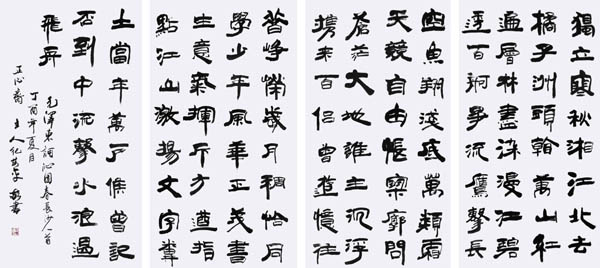 獨立寒秋湘江北去
橘子洲頭看萬山紅
遍層林盡染漫江碧
透百舸爭流鷹擊長
空魚翔淺底萬類霜
天競自由悵寥廓問
蒼茫大地誰主沉浮
攜來百侶曾遊憶往
昔崢嶸歲月稠恰同
學少年風華正茂書
生意氣揮斥方遒指
點江山激揚文字糞
土當年萬戶侯曾記
否到中流擊水浪遏
飛舟
毛澤東詞沁園春長沙一首
丁酉年夏月
正心齋主人紀書